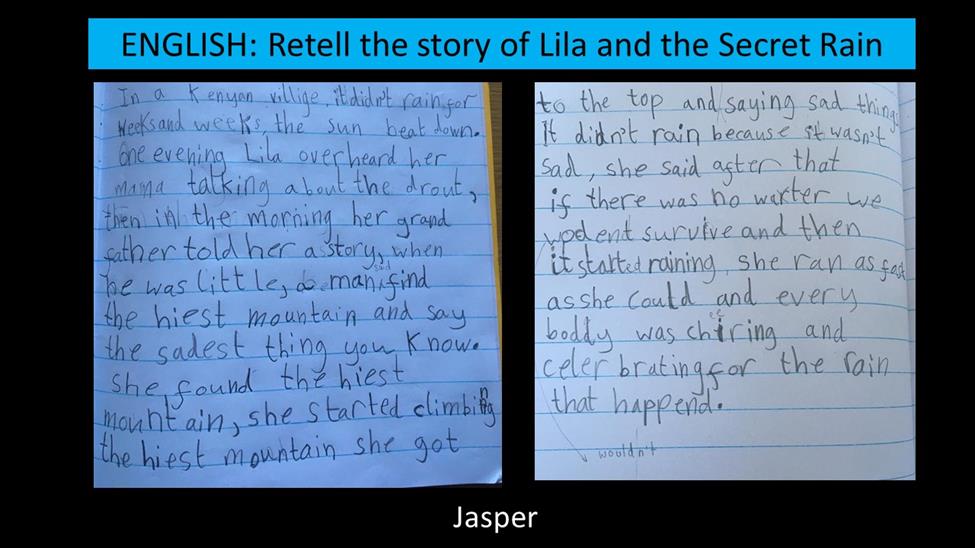 ENGLISH: Retell the story of Lila and the Secret Rain
In a Kenyan villige, it didn't rain for
weeks and weeks, the sun beat down.
One evening Lila overheard her
mama talking about the drout,
then in the morning her grand
father told her a story, when
he was little, a man said find
the hiest mountain and say
the sadest thing you know.
She found the hiest
mountain, she started climbing
the hiest mountain she got
to the top and saying sad things
It didn't rain because it wasn't
sad, she said after that
if there was no warter we
wodent survive and then
it started raining, she ran as fast
as she could and every
boddy was chiring and
celerbrating for the rain
that happend.
wouldn't
Jasper